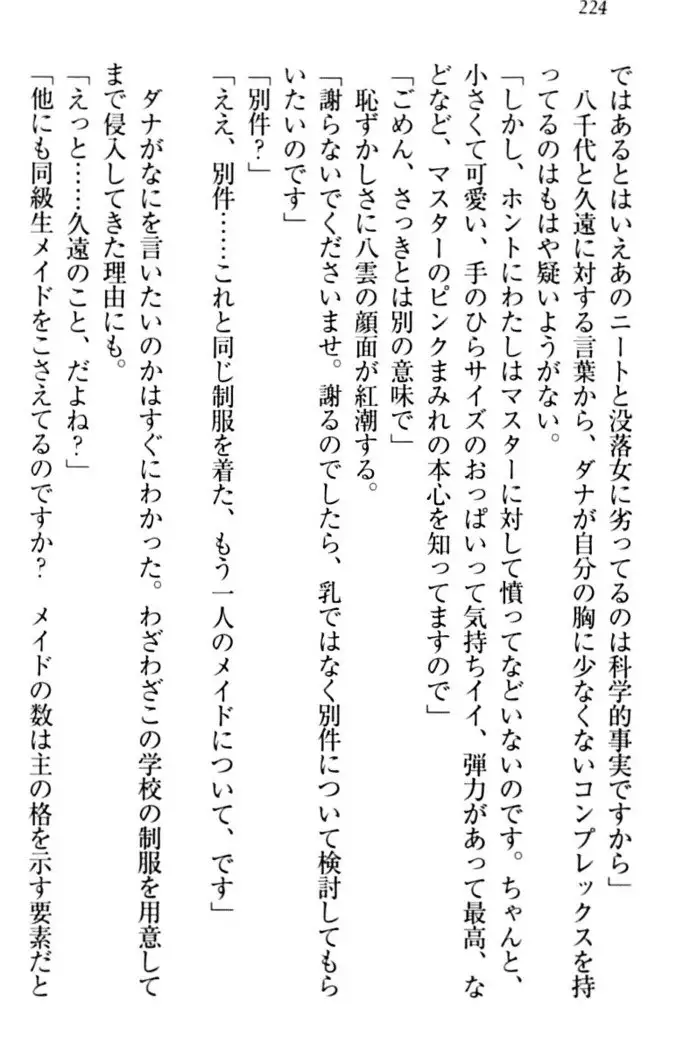 224
ではあるとはいえあのニートと没落女に劣ってるのは科学的事実ですから」
八千代と久遠に対する言葉から、ダナが自分の胸に少なくないコンプレックスを持
ってるのはもはや疑いようがない。
「しかし、ホントにわたしはマスターに対して憤ってなどいないのです。ちゃんと、
小さくて可愛い、手のひらサイズのおっぱいって気持ちイイ、弾力があって最高、な
どなど、マスターのピンクまみれの本心を知ってますので」
「ごめん、さっきとは別の意味で」
恥ずかしさに八雲の顔面が紅潮する。
「謝らないでくださいませ。謝るのでしたら、乳ではなく別件について検討してもら
いたいのです」
「別件？」
「ええ、別件……これと同じ制服を着た、もう一人のメイドについて、です」
ダナがなにを言いたいのかはすぐにわかった。わざわざこの学校の制服を用意して
まで侵入してきた理由にも。
「えっと……久遠のこと、だよね？」
「他にも同級生メイドをこさえてるのですか？　メイドの数は主の格を示す要素だと